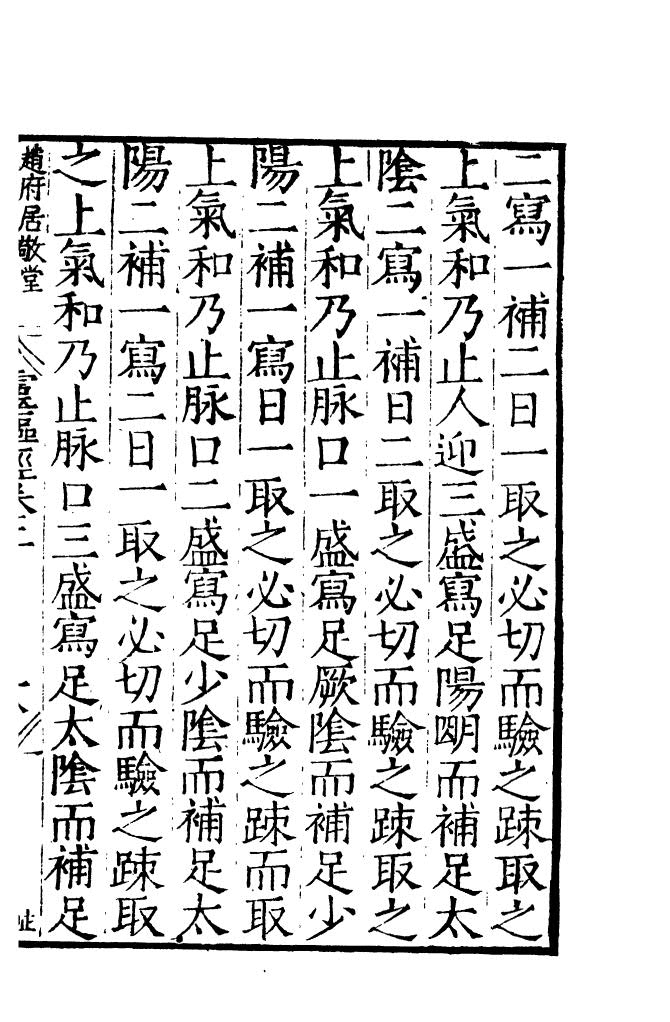 二寫一補二日一取之必切而驗之踈取之
上氣和乃止人迎三盛寫足陽明而補足太
陰二寫一補日二取之必切而驗之踈取之
上氣和乃止脉口一盛寫足厥陰而補足少
陽二補一寫日一取之必切而驗之踈而取
上氣和乃止脉口二盛寫足少陰而補足太
陽二補一寫二日一取之必切而驗之踈取
之上氣和乃止脉口三盛寫足太陰而補足
趙府居敬堂
靈樞經卷三